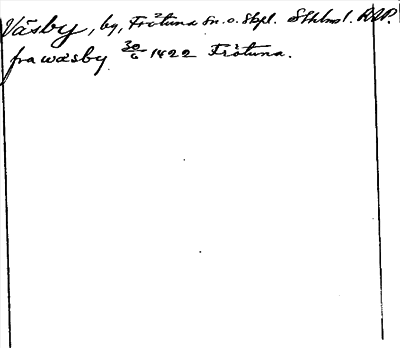 Väsby, by, Frötuna sn. o. skpl. Sthlms l. RAP.
fra wæsby 30/6 1422 Frötuna.